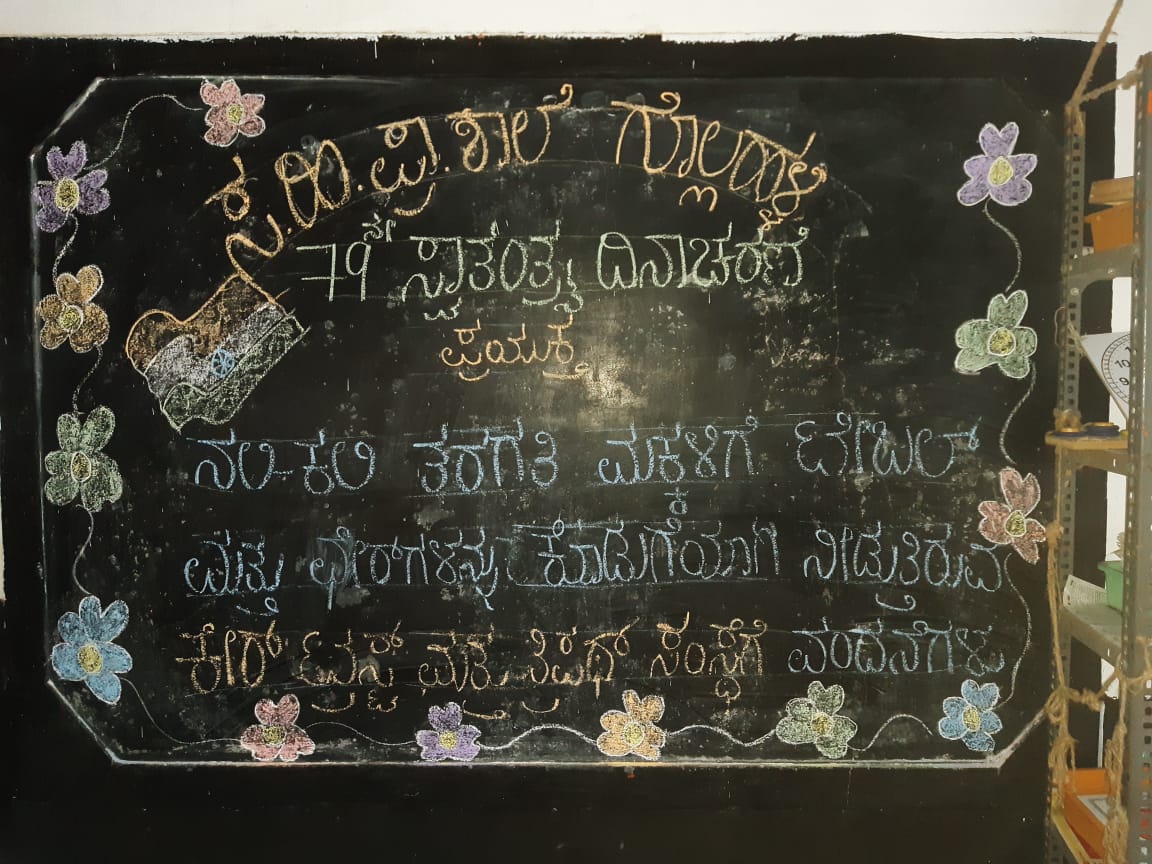 ಸ.ಹಿ.ಪ್ರಾ.ಶಾಲೆ ಗೊಲ್ಲಹಳ್ಳಿ
79ನೇ ಸ್ವಾತಂತ್ರ್ಯ ದಿನಾಚರಣೆ
ಪ್ರಯುಕ್ತ
ನಲಿ-ಕಲಿ ತರಗತಿ ಮಕ್ಕಳಿಗೆ ಟೇಬಲ್
ಮತ್ತು ಛೇರ್‌ಗಳನ್ನು ಕೊಡುಗೆಯಾಗಿ ನೀಡುತ್ತಿರುವ
ಕೇರ್ ಟ್ರಸ್ಟ್ ಮತ್ತು ಸಂಸ್ಥೆಗೆ ವಂದನೆಗಳು
10
9